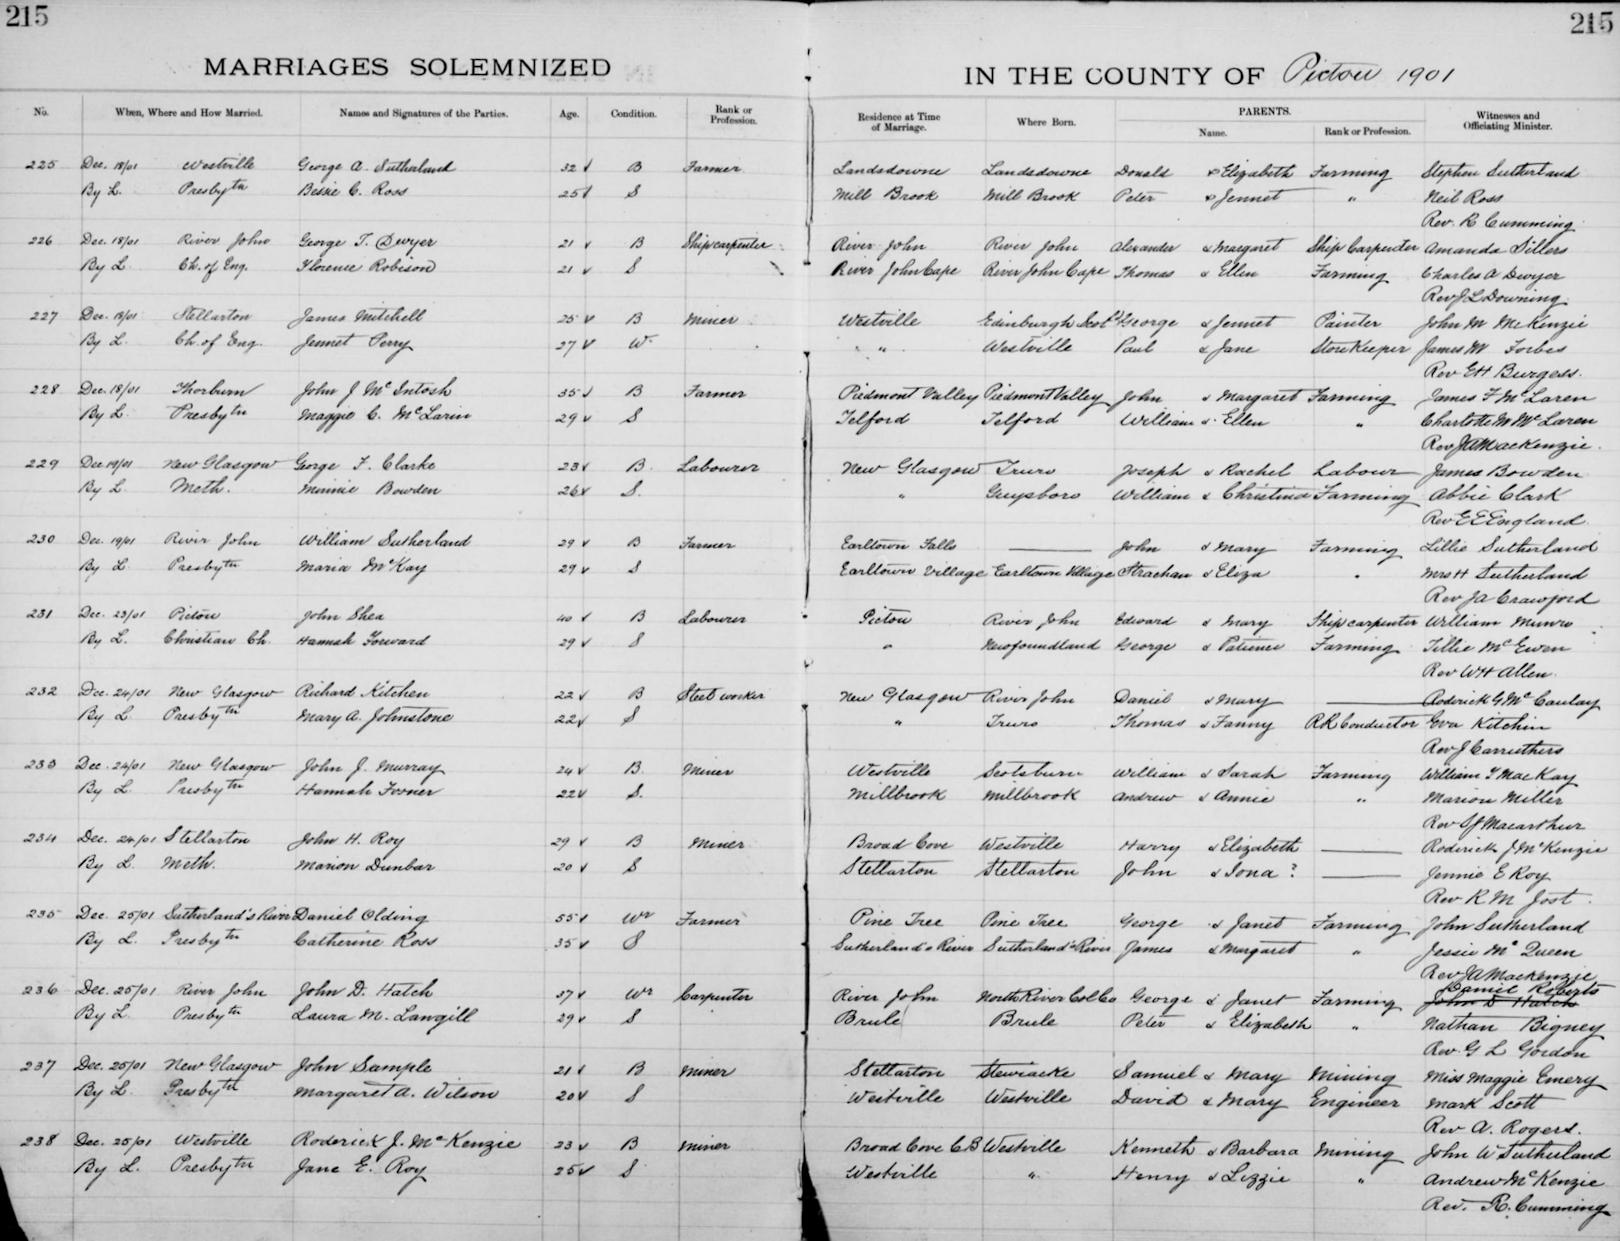 215
215
MARRIAGES SOLEMNIZED IN THE COUNTY OF Pictou 1901
No. When, Where and How Married. Names and Signatures of the Parties. Age. Condition. Rank or Profession. Residence at Time of Marriage. Where Born. PARENTS. Name. Rank or Profession. Witnesses and Officiating Minister.
225 Dec. 18/01 Westville George A. Sutherland 32 B Farmer Landsdowne Landsdowne Donald & Elizabeth Farming Stephen Sutherland
By L. Presbytn Bessie C. Ross 25 S Mill Brook Mill Brook Peter & Jennet " Neil Ross
Rev. R Cumming
226 Dec. 18/01 River John George T. Dwyer 21 B Ship carpenter River John River John Alexander & Margaret Ship Carpenter Amanda Sillers
By L Ch. of Eng. Florence Robison 21 S River John Cape River John Cape Thomas & Ellen Farming Charles A Dwyer
Rev J L Downing
227 Dec. 18/01 Stellarton James Mitchell 25 B Miner Westville Edinburgh Scotd George & Jennet Painter John M McKenzie
By L. Ch. of Eng. Jennet Perry 27 Wr " Westville Paul & Jane Store Keeper James M Forbes
Rev E H Burgess.
228 Dec. 18/01 Thorburn John J McIntosh 35 B Farmer Piedmont Valley Piedmont Valley John & Margaret Farming James F McLaren
By L. Presbytn Maggie C. McLarin 29 S Telford Telford William & Ellen " Charlotte M McLaren
Rev J A MacKenzie.
229 Dec 19/01 New Glasgow George F. Clarke 23 B. Labourer New Glasgow Truro Joseph & Rachel Labour James Bowden
By L. Meth. Minnie Bowden 26 S. " Guysboro William & Christina Farming Abbie Clark
Rev E E England.
230 Dec. 19/01 River John William Sutherland 29 B Farmer Earltown Falls —— John & Mary Farming Lillie Sutherland
By L Presbytn Maria McKay 29 S Earltown Village Earltown Village Strachan & Eliza " Mrs H Sutherland
Rev J A Crawford
231 Dec. 23/01 Pictou John Shea 40 B Labourer Pictou River John Edward & Mary Ship carpenter William Munro
By L. Christian Ch. Hannah Forward 29 S " Newfoundland George & Patience Farming Tillie McEwen
Rev W H Allen.
232 Dec. 24/01 New Glasgow Richard Kitchen 22 B Steel worker New Glasgow River John Daniel & Mary —— Roderick G McCaulay
By L. Presbytn Mary A. Johnstone 22 S " Truro Thomas & Fanny RR Conductor Eva Kitchin
Rev J Carruthers
233 Dec. 24/01 New Glasgow John J. Murray 24 B. Miner Westville Scotsburn William & Sarah Farming William Y MacKay
By L Presbytn Hannah 22 S. Millbrook Millbrook Andrew & Annie " Marion Miller
Rev Macarthur
234 Dec. 24/01 Stellarton John H. Roy 29 B Miner Broad Cove Westville Harry & Elizabeth —— Roderick J McKenzie
By L. Meth. Marion Dunbar 20 S Stellarton Stellarton John & Iona? —— Jennie E Roy
Rev R M Jost.
235 Dec. 25/01 Sutherland's River Daniel Olding 55 Wr Farmer Pine Tree Pine Tree George & Janet Farming John Sutherland
By L. Presbytn Catherine Ross 35 S Sutherland's River Sutherland's River James & Margaret " Jessie McQueen
Rev J A Mackenzie
Daniel Roberts
236 Dec. 25/01 River John John D. Hatch 37 Wr Carpenter River John North River Col Co George & Janet Farming John D Hatch
By L. Presbytn Laura M. Langill 29 S Brule Brule Peter & Elizabeth " Nathan Bigney
Rev. G L Gordon
237 Dec. 25/01 New Glasgow John Sample 21 B Miner Stellarton Stewiacke Samuel & Mary Mining Miss Maggie Emery
By L. Presbytn Margaret A. Wilson 20 S Westville Westville David & Mary Engineer Mark Scott
Rev A. Rogers.
238 Dec. 25/01 Westville Roderick J. McKenzie 23 B Miner Broad Cove C.B Westville Kenneth & Barbara Mining John W Sutherland
By L. Presbytn Jane E. Roy 25 S Westville " Henry & Lizzie " Andrew McKenzie
Rev. R. Cumming